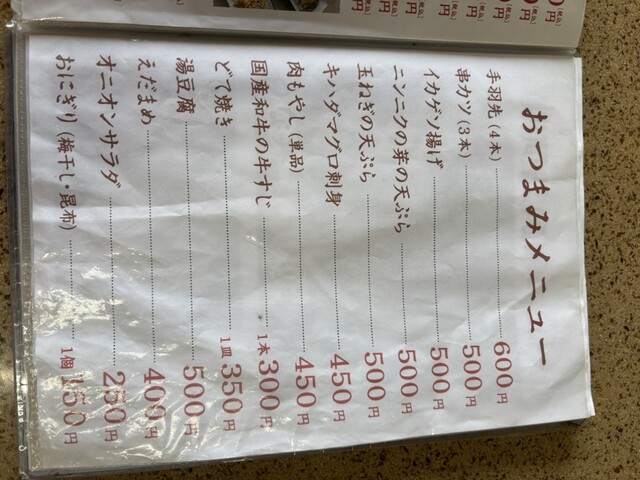 おつまみメニュー
手羽先(4本) 600円
串カツ(3本) 500円
イカゲソ揚げ 500円
ニンニクの芽の天ぷら 500円
玉ねぎの天ぷら 500円
キハダマグロ刺身 450円
肉もやし(単品) 450円
国産和牛の牛すじ 1本 300円
どて焼き 1皿 350円
湯豆腐 500円
えだまめ 400円
オニオンサラダ 250円
おにぎり(梅干し・昆布) 1個 150円